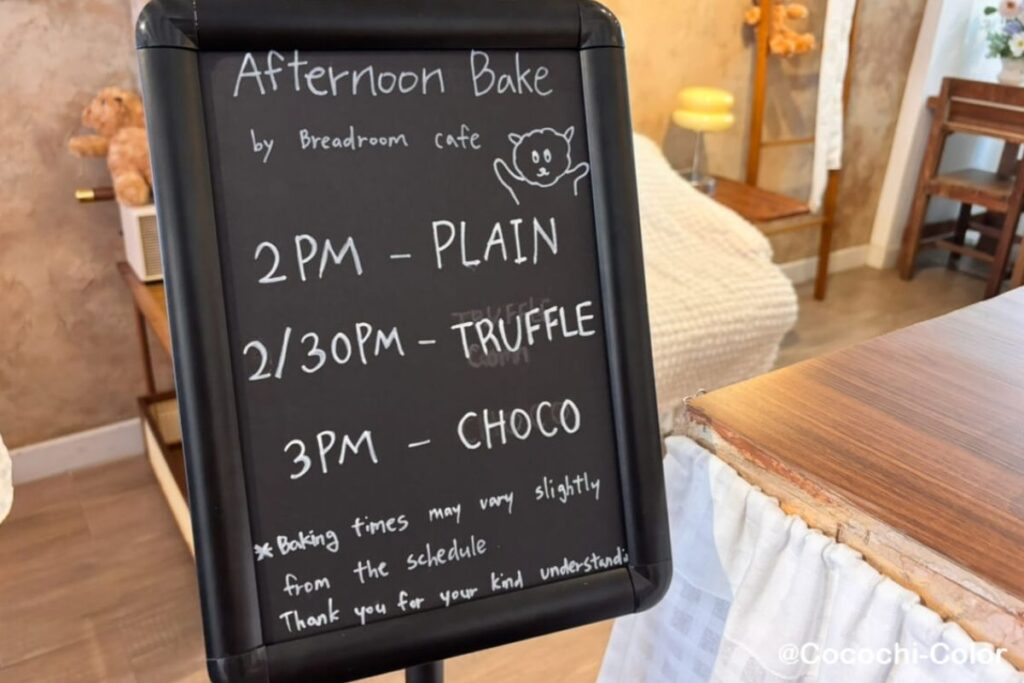 Afternoon Bake
by Breadroom cafe
2PM - PLAIN
2/30PM - TRUFFLE
3PM - CHOCO
※Baking times may vary slightly
from the schedule
Thank you for your kind understandi
@Cocochi-Color